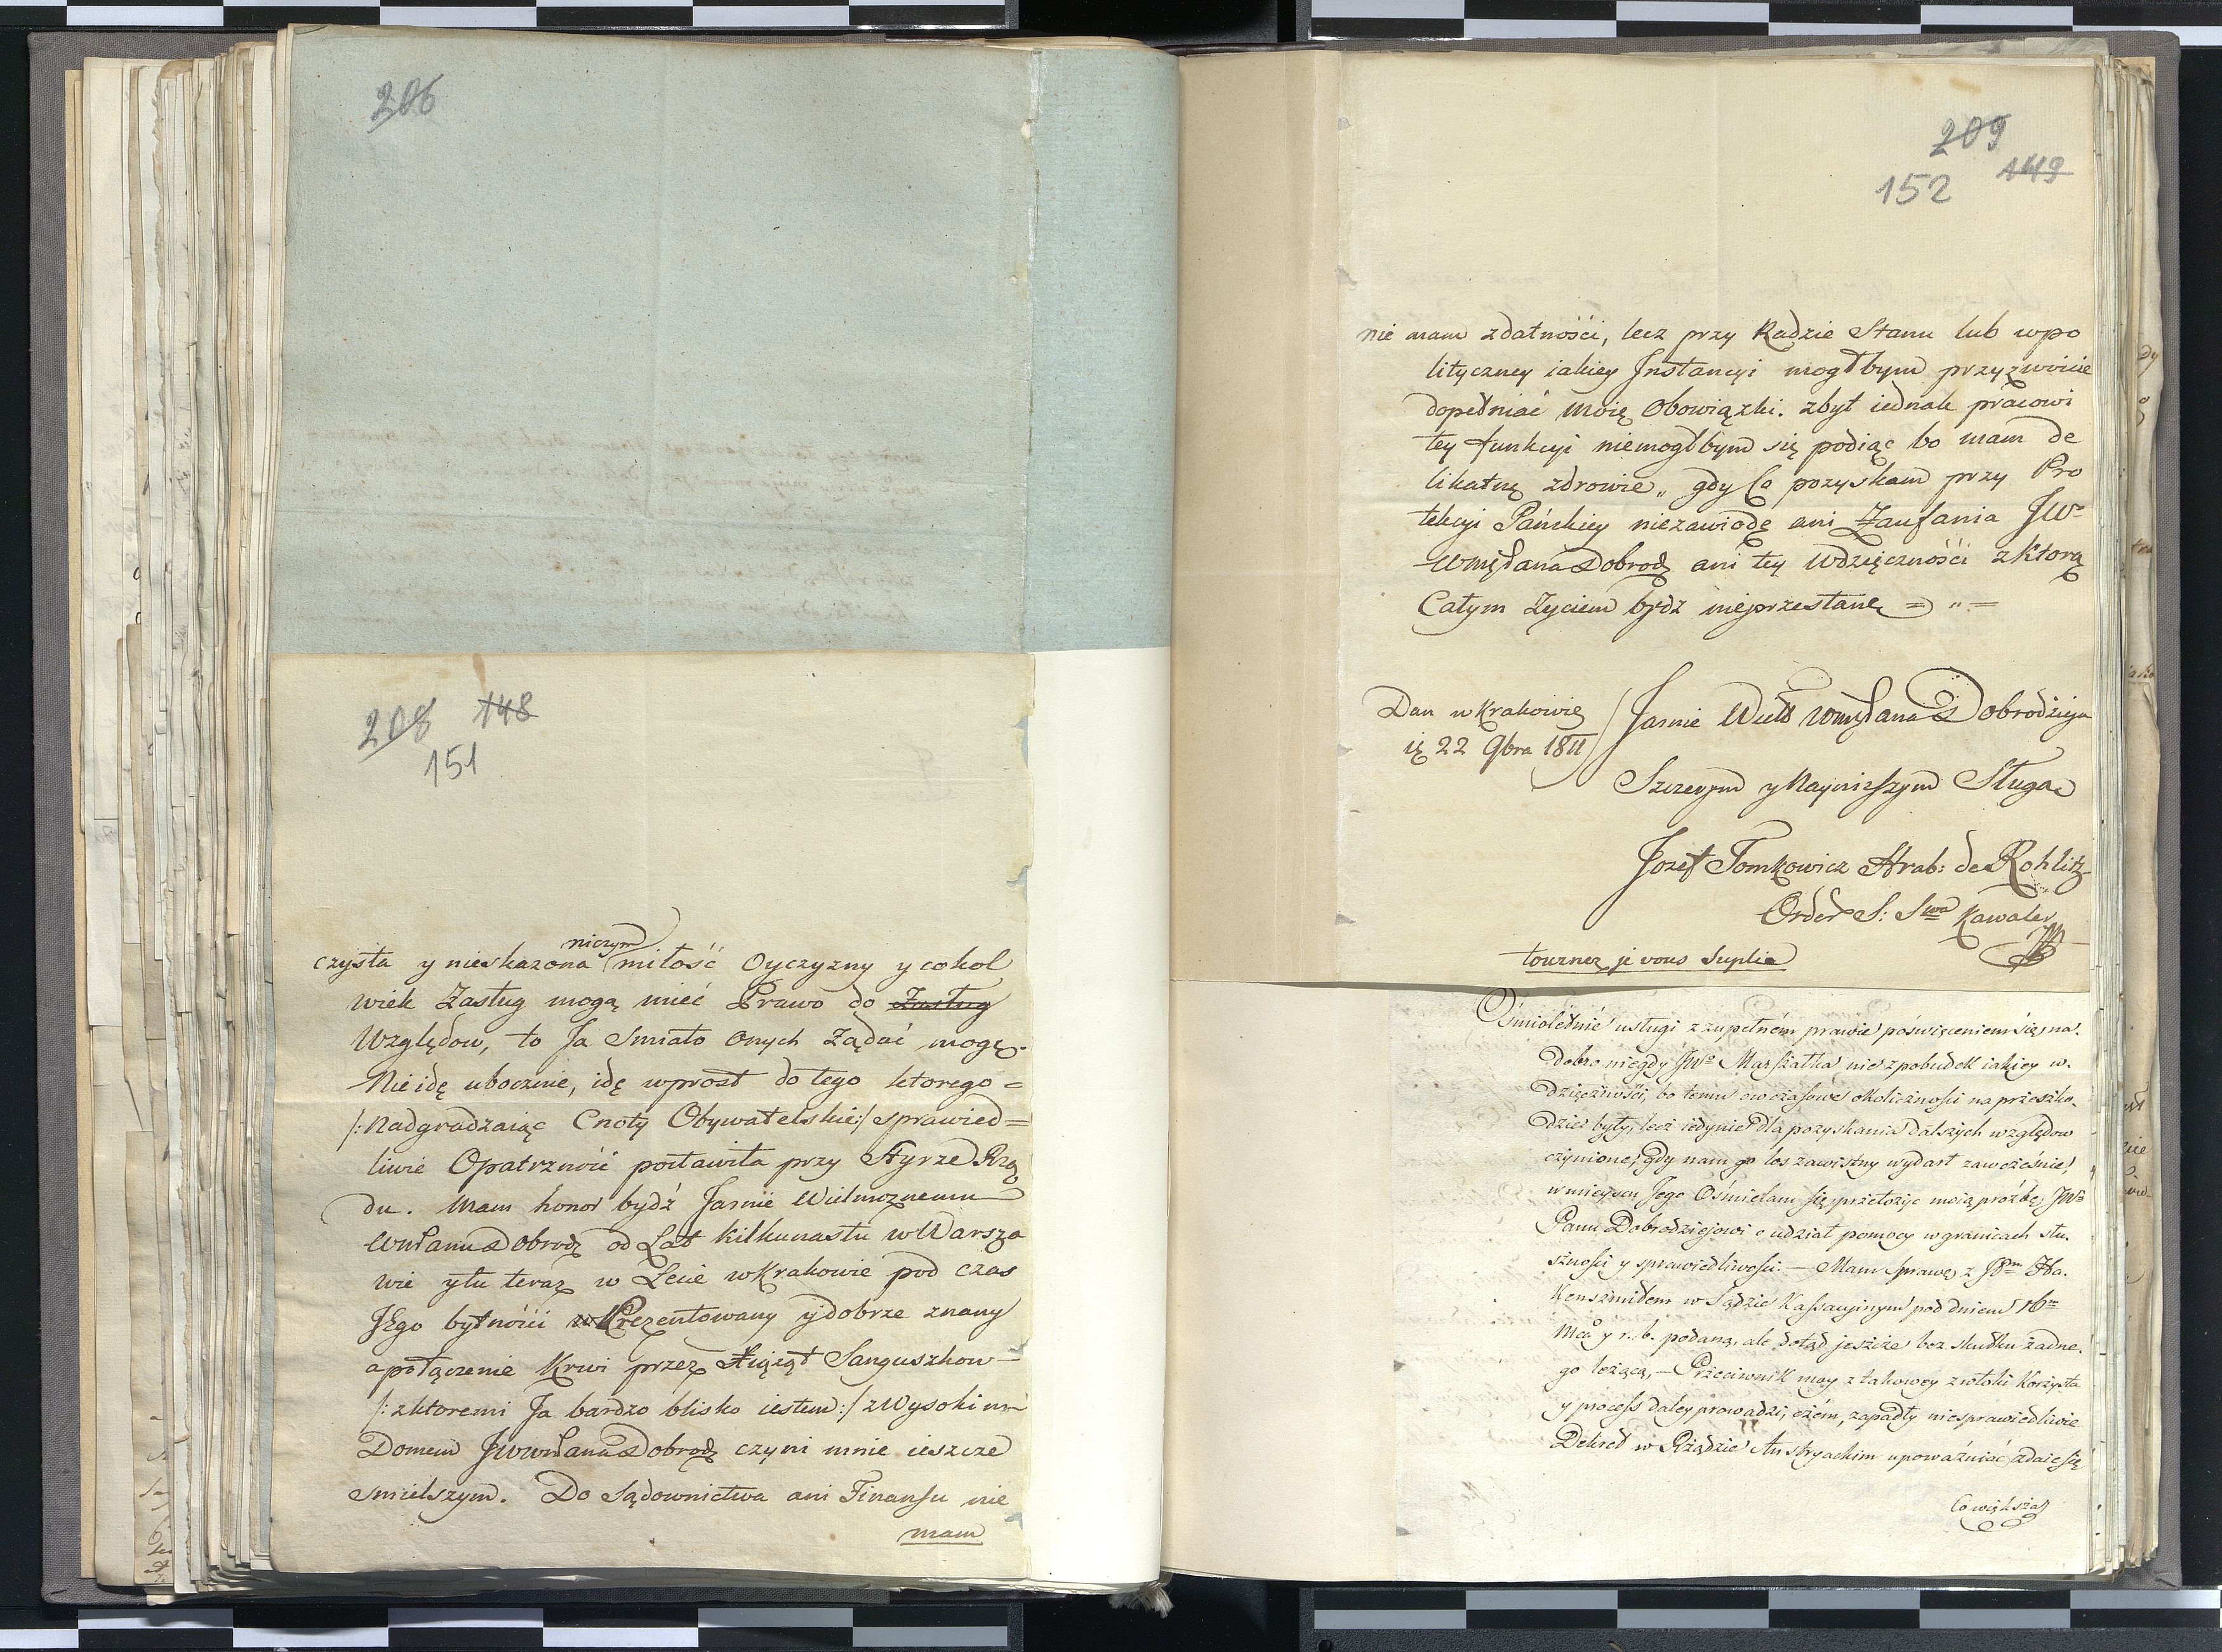 206
208 148
151
niczym
czysta y nieskazona miłość Oyczyzny y cokol
wiek Zasług mogą mieć Prawo do Zasług
Względow, to Ja Smiało onych Ządać mogę.
Nie idę ubocznie, idę wprost do tego ktorego =
/: Nadgradzaiąc Cnoty Obywatelskie :/ sprawied=
liwie Opatrzność postawiła przy Styrze Rzą
du. Mam honor bydź Jasnie Wielmoznemu
WmPanu Dobrodz od Lat kilkunastu w Warsza
wie y tu teraz w Lecie w Krakowie pod czas
Jego bytności Prezentowany y dobrze znany
a połączenie Krwi przez Xiążąt Sanguszkow –
/: z ktoremi Ja bardzo blisko iestem :/ z Wysokim
Domem JWWmPana Dobrodz czyni mnie ieszcze
smielszym. Do Sądownictwa ani Finansu nie
mam
209
149
152
nie mam zdatności, lecz przy Radzie Stanu lub w po
lityczney iakiey Instancyi mogłbym przyzwoicie
dopełniać moie Obowiązki. zbyt iednak pracowi
tey funkcyi niemogłbym się podiąć bo mam de
likatne zdrowie „ gdy Co pozyskam przy Pro
tekcyi Pańskiey niezawiodę ani Zaufania JW
WmPana Dobrodz ani tey wdzięczności z ktorą
Całym Zyciem bydz nieprzestanę = „ =
Dan w Krakowie
ie 22 9bra 1811
Jasnie Wiel WmPana Dobrodzieja
Szczerym y Nayniższym Sługa
Jozef Tomkowicz Hrab: de Rohlitz
Order S: Swa Kawaler
tournez je vous suplie
Ośmioletnie usługi z zupełném prawie poświęceniem się na
dobro niegdy JWo Marszałka nie z pobudek iakiey w.
dzięczności, bo temu owczasowe okoliczności na przeszko.
dzie były, lecz iedynie dla pozyskania dalszych względow
czynione, gdy nam go los zawistny wydarł zawcześnie,
w mieyscu Jego Ośmielam się przełożyć moią prośbę JWo
Panu Dobrodziejowi o udział pomocy w granicach słu.
szności y sprawiedliwości. — Mam sprawę z JPm Ha.
kenszmidem w Sądzie Kassacyinym pod dniem 16m
Mca y r. b. podaną, ale dotąd jeszcze bez skutku żadne.
go leżącą, — Przeciwnik moy z takowey zwłoki korzysta
y process daley prowadzi, czém, zapadły niesprawiedliwie
Dekret w Rządzie Austryackim upoważniać zdaie się
Co większa